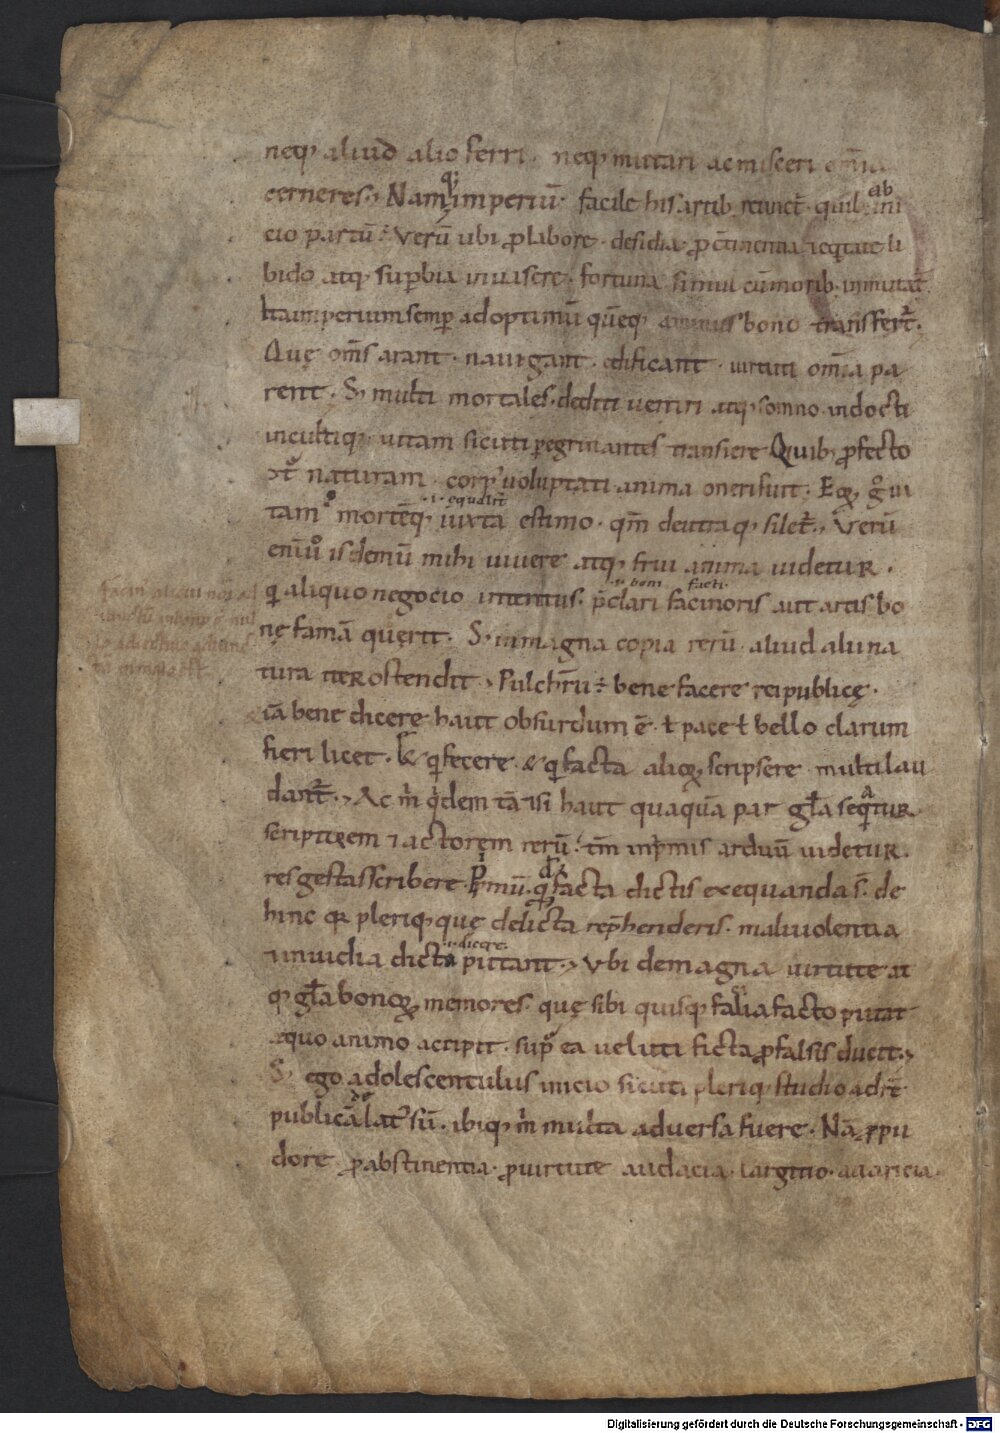 neq; aliud alio ferri. neq; mutari ac misceri om̄ia
cerneres. Nam qi imperiū. facile his artib; retinet̄. quib; ab ini
cio partū ÷ Verū ubi ꝓ labore. desidia. ꝓ c̄tinentia ⁊ eq̄tate li
bido atq; suꝑbia inuasere. fortuna simul cū morib; inmutat̄.
Ita imperium semꝑ ad optimū quēq; a minus bono transfert̄.
Quę om̄s arant. nauigant. edificant. uirtuti om̄ia pa
rent. S; multi mortales. dediti uentri atq; somno. indocti
incultiq; uitam sicuti ꝑegrinantes transiere Quib; ꝓfecto
naturam. corp᾽ uoluptati anima oneri fuit. Eoꝝ g̊ ui
tam mortēq; iuxta estimo. qm̄ de utraq; silet̄. Verū
.i. equalit̄
enīuo is demū mihi uiuere atq; frui anima uidetur.
qi aliquo negocio intentus. p̄clari facinoris aut artis bo
.i. boni facti.
nę famā quęrit. S; in magna copia rerū aliud alii na
tura iter ostendit. Pulchrū ÷ bene facere rei publicę.
&iā bene dicere haut obsurdum ē. ł pace ł bello clarum
fieri licet. & qi fecere. & qi facta alioꝝ scripsere multi lau
dant̄. Ac m̄ qidem tā&si haut quaquā par gl̄a seqātur
scriptorem ⁊ actoręm rerū. tm̄ inp̄mis arduū uidetur.
res gestas scribere. Pimū. qd facta dictis exequanda s̄. de
hinc qr pleriq; quę delicta rep̄henderis. maliuolentia
⁊ inuidia dicta putant. Vbi de magna uirtute at
.i. dicere.
q; gl̄a bonoꝝ memores. quę sibi quisq; facilia factu putat
ęquo animo accipit. sup̄ ea ueluti ficta ꝓ falsis ducit.
S; ego adolescentulus inicio sicuti pleriq; studio ad rē
publicā lat᾽ sū. ibiq; m̄ multa aduersa fuere. Nā ꝓ pu
dore ꝓ abstinentia. ꝓ uirtute audacia. largitio. auaricia.